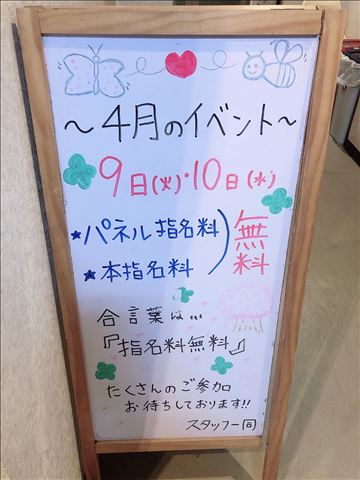 ～4月のイベント～
9日(火)・10日(水)
★パネル指名料
★本指名料
無料
合言葉は…
『指名料無料』
たくさんのご参加
お待ちしております!!
スタッフ一同